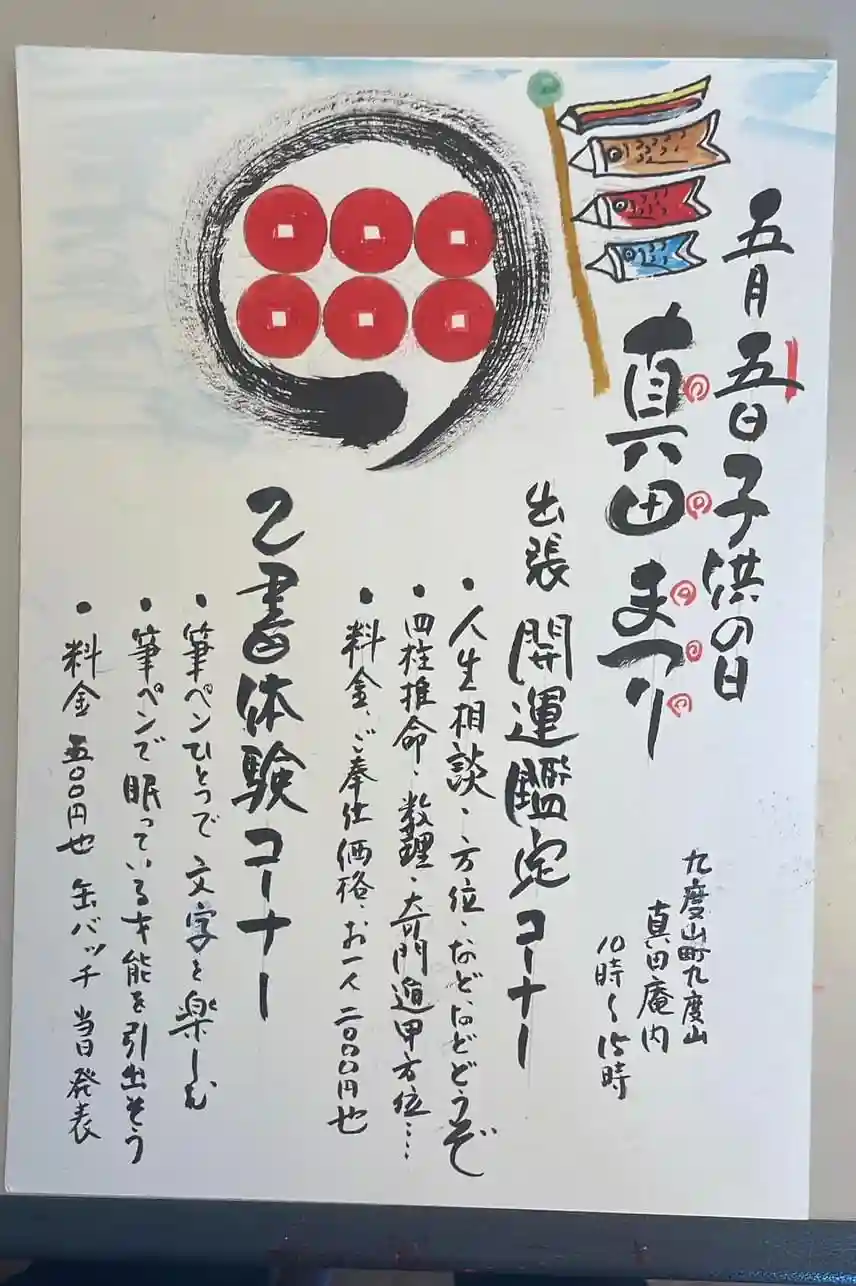 五月五日子供の日
真田まつり
九度山町九度山
真田庵内
10時〜15時
出張 開運鑑定コーナー
・人生相談・方位・などなどどうぞ
・四柱推命・数理・奇門遁甲方位…
・料金、ご奉仕価格、お一人二〇〇〇円也
乙書体験コーナー
・筆ペンひとつで文字を楽しむ
・筆ペンで眠っている才能を引出そう
・料金 五〇〇円也 缶バッチ 当日発表